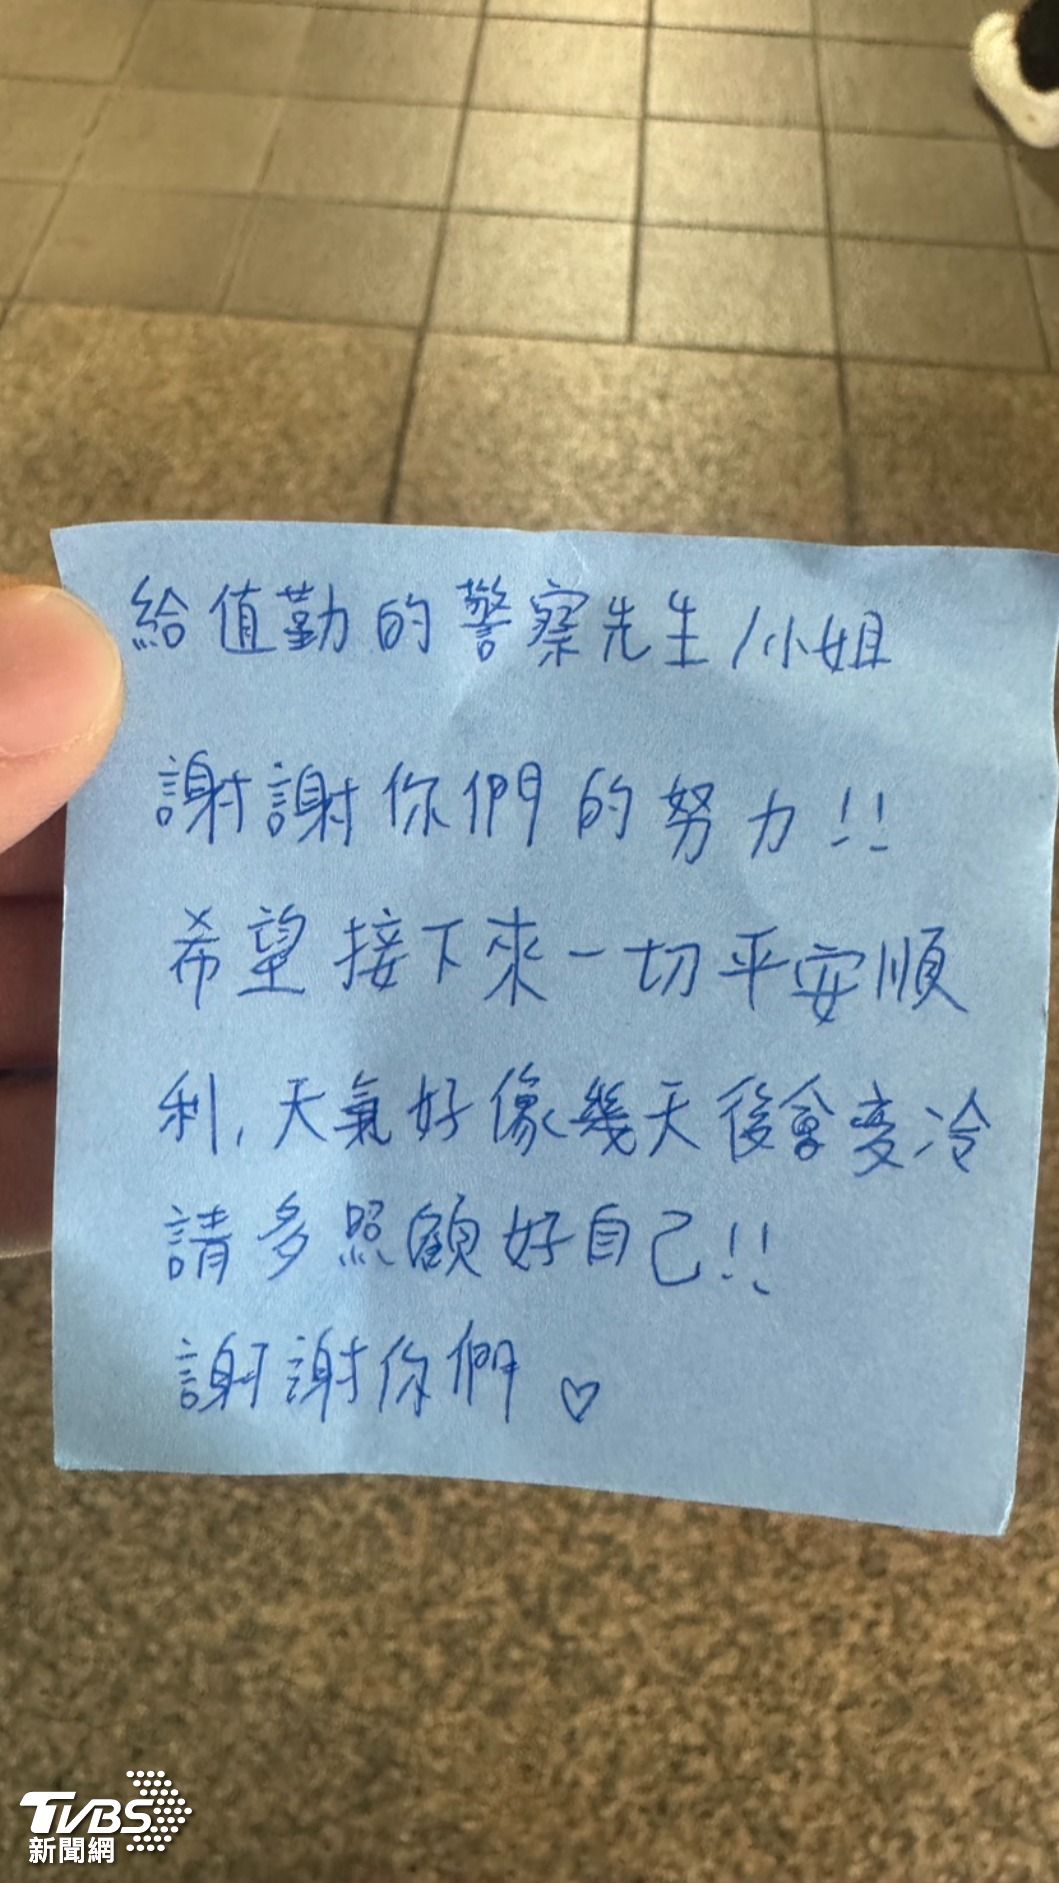 給值勤的警察先生/小姐
謝謝你們的努力!!
希望接下來一切平安順
利,天氣好像幾天後會變冷
請多照顧好自己!!
謝謝你們♡
TVBS
新聞網